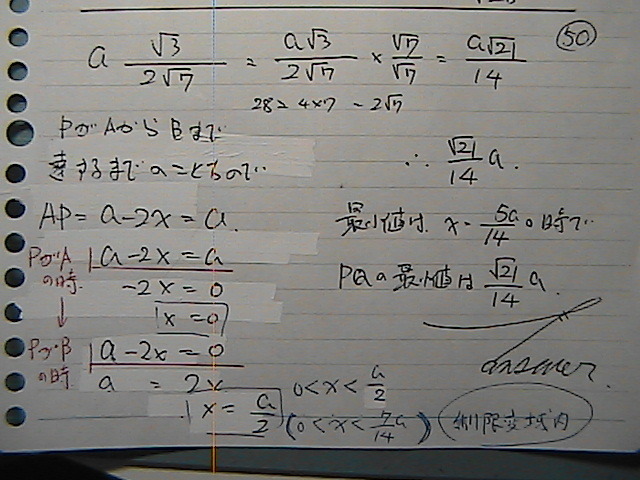 50
a √3/2√7 = a√3/2√7 × √7/√7 = a√21/14
28 = 4×7 = 2√7
PがAからBまで
達するまでのことなので
∴ √21/14 a.
AP = a-2x = a.
最小値は x = 5a/14 の時で
PがAの時 a-2x = a
-2x = 0
x = 0
PQの最小値は √21/14 a.
↓
PがBの時 a-2x = 0
a = 2x
x = a/2
answer.
0<x<a/2
(0<x<7/14 a) 制限変域内